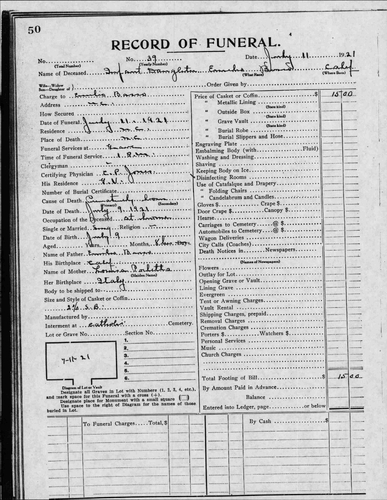 50
RECORD OF FUNERAL.
No. No. 39 Date July 11 1921
(Total Number) (Yearly Number)
Name of Deceased Infant Daughter Calif
(What Race) (Where Born)
Wife-Widow
Son or Daughter of Order Given by
Charge to
Address N.C.
How Secured
Date of Funeral July 11, 1921
Residence N.C.
Place of Death N.C.
Funeral Services at Grave
Time of Service 1 P.M.
Clergyman
Certifying Physician C.P. Jones
His Residence
Number of Burial Certificate
Cause of Death born
Date of Death July 9, 1921
Occupation of the Deceased at home
Single or Married Sing Religion
Date of Birth July 9
Aged Years Months
Name of Father
His Birthplace Calif
Name of Mother Louisa
(Maiden Name)
Her Birthplace Italy
Body to be shipped to
Size and Style of Casket or Coffin
Manufactured by
Interment at Catholic Cemetery.
Lot or Grave No. Section No.
7-11-21
1.
2.
3.
4.
5.
6.
7.
8.
Diagram of Lot or Vault
Designate all Graves in Lot with Numbers (1, 2, 3, 4, etc.),
and mark space for this Funeral with a cross (+).
Designate place for Monument with a small square
Use space to the right of Diagram for the names of those
buried in Lot.
Price of Casket or Coffin $ 15.00
" Metallic Lining
(State kind)
" Outside Box
(State kind)
" Grave Vault
(State kind)
" Burial Robe
(State kind)
" Burial Slippers and Hose
Engraving Plate
Embalming Body (with Fluid)
Washing and Dressing
Shaving
Keeping Body on Ice
Disinfecting Rooms
Use of Catafalque and Drapery
" Folding Chairs
" Candelabrum and Candles
Gloves $ Crape $
Door Crape $ Canopy $
Hearse
Carriages to Cemetery @ $
Automobiles to Cemetery @ $
Wagon Deliveries
City Calls (Coaches)
Death Notices in Newspapers
(Names of Newspapers)
Flowers
Outlay for Lot
Opening Grave or Vault
Lining Grave
Evergreen
Tent or Awning Charges
Vault Rental
Shipping Charges, prepaid
Removal Charges
Cremation Charges
Porters $ Watchers $
Personal Services
Music
Church Charges
Total Footing of Bill $ 15.00
By Amount Paid in Advance
Balance
Entered into Ledger, page or below
To Funeral Charges Total, $ $